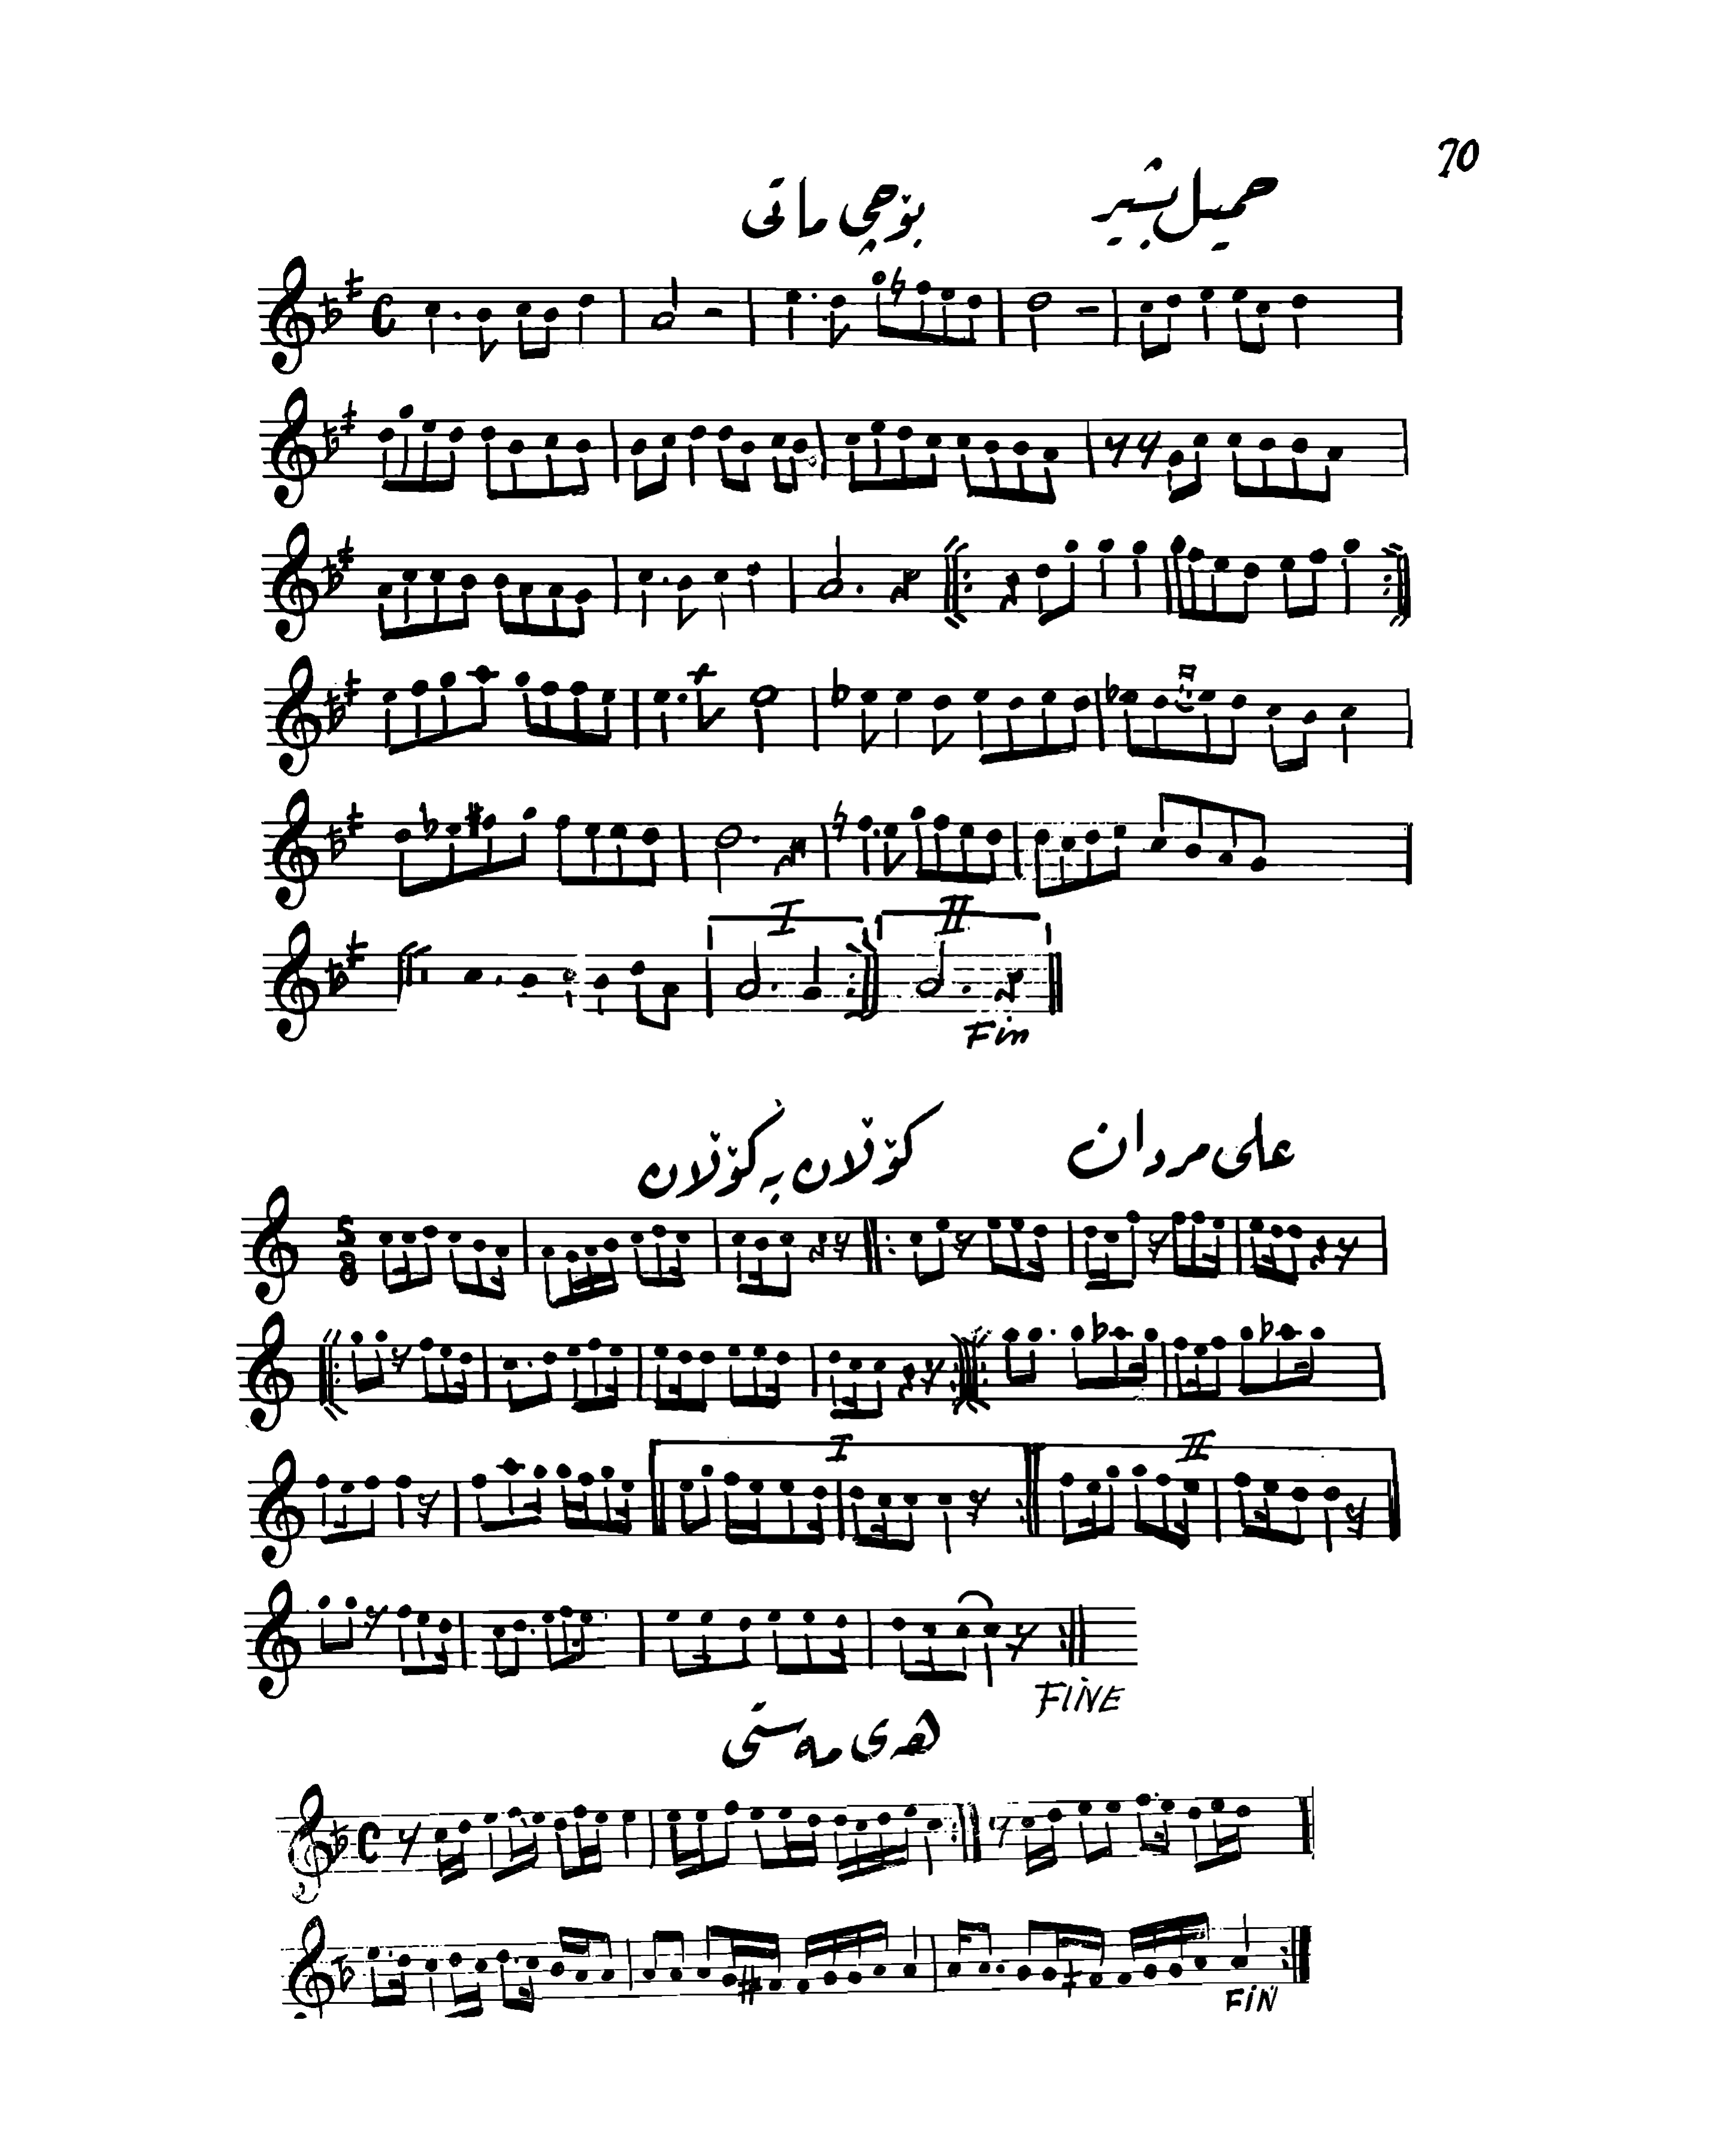 70
جميل بشير بۆچی ماتی
I II
Fin
علی مردان كۆڵان به كۆڵان
5
8
I II
FINE
هەی مەستی
FIN